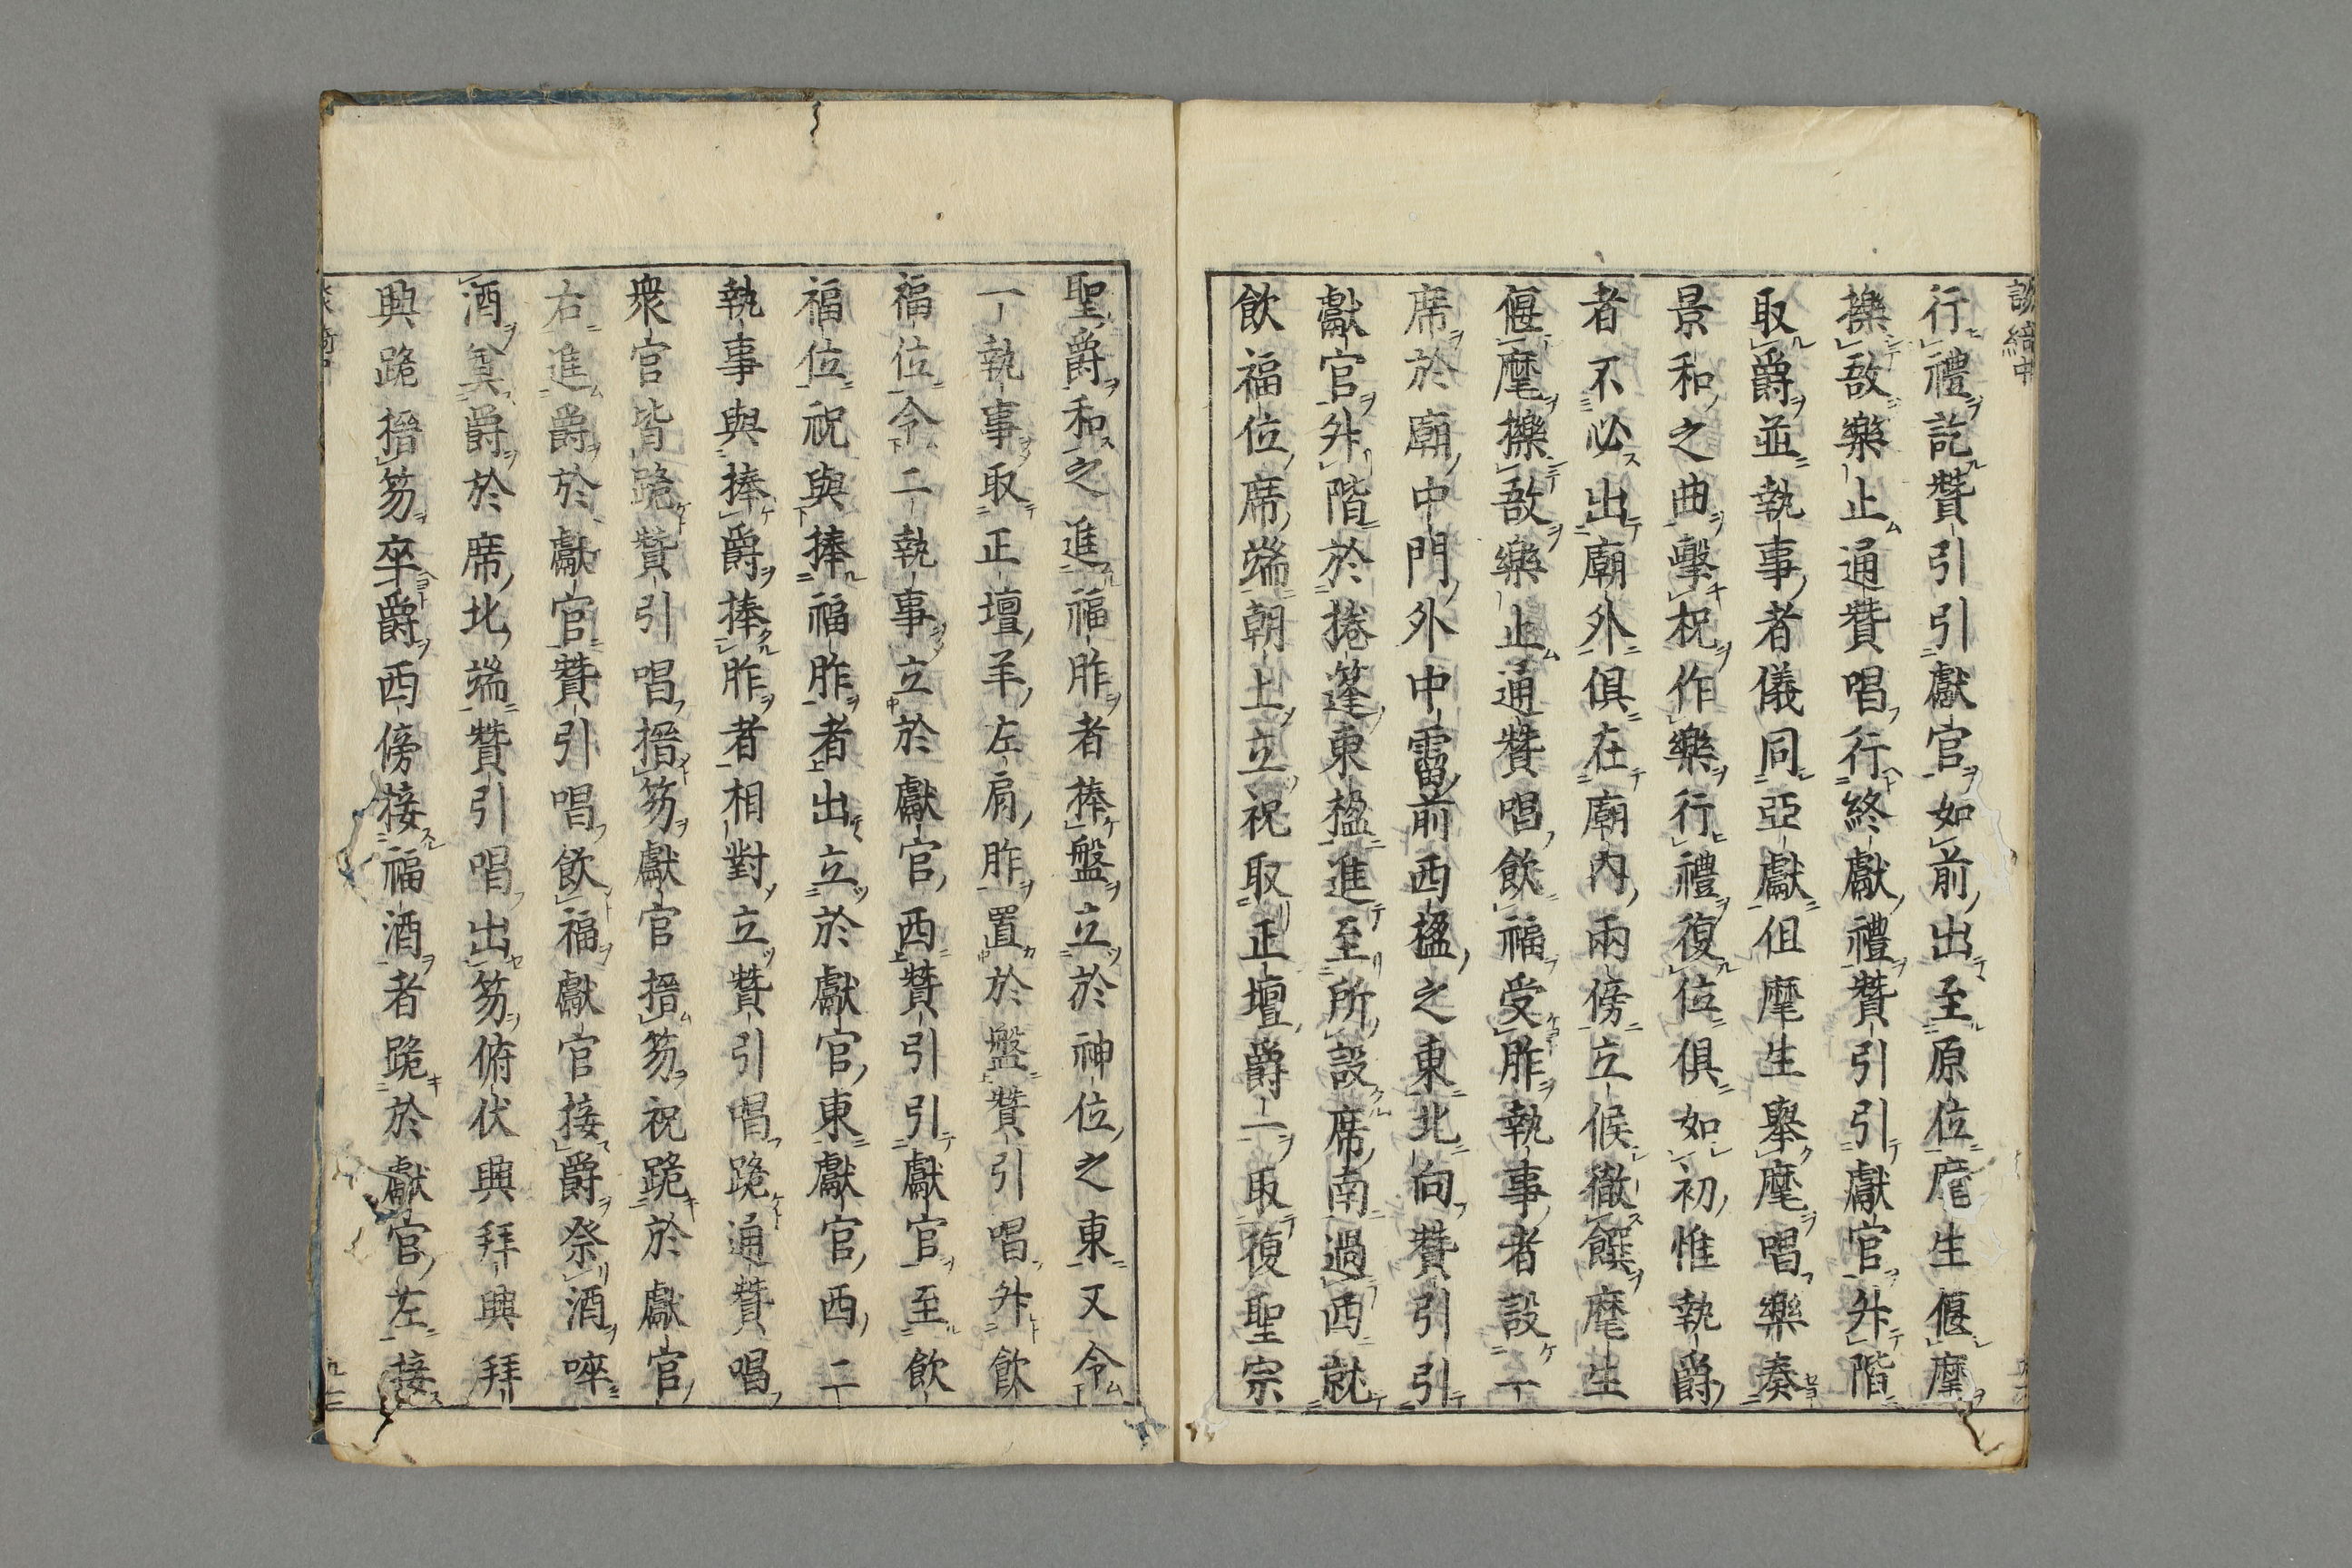 談綺中
行禮訖贊引引獻官如前出至原位麾生偃麾
擽敔樂止通贊唱行終獻禮贊引引獻官升階
取爵並執事者儀同亞獻但麾生舉麾唱樂奏
景和之曲擊柷作樂行禮復位俱如初惟執爵
者不必出廟外俱在廟內兩傍立候徹饌麾生
偃麾擽敔樂止通贊唱飲福受胙執事者設一
席於廟中門外中霤前西楹之東北向贊引引
獻官升階於捲篷東楹進至所設席南過西就
飲福位席端朝上立祝取正壇爵一取復聖宗
聖爵和之進福胙者捧盤立於神位之東又令
一執事取正壇羊左肩胙置於盤贊引唱升飲
福位令二執事立於獻官西贊引引獻官至飲
福位祝與捧福胙者出立於獻官東獻官西二
執事與捧爵捧胙者相對立贊引唱跪通贊唱
衆官皆跪贊引唱搢笏獻官搢笏祝跪於獻官
右進爵於獻官贊引唱飲福獻官接爵祭酒啐
酒奠爵於席北端贊引唱出笏俯伏興拜興拜
興跪搢笏卒爵西傍接福酒者跪於獻官左接